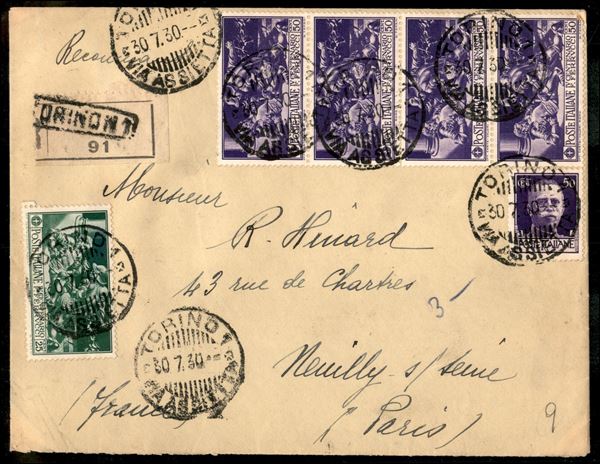 TORINO 1
30.7.30
VIA ASSIETTA
POSTE ITALIANE
50
POSTE ITALIANE
50
POSTE ITALIANE
50
POSTE ITALIANE
50
TORINO 1
VIA ASSIETTA
TORINO 1
30
TORINO 1
91
TORINO 1
30.7.30
VIA ASSIETTA
50
ITALIANE
Monsieur
R. Hénard
43 rue de Chartres
3
Neuilly s/Seine
(Paris)
(France)
9
POSTE ITALIANE
25
TORINO 1
TORINO 1
30.7.30
VIA ASSIETTA